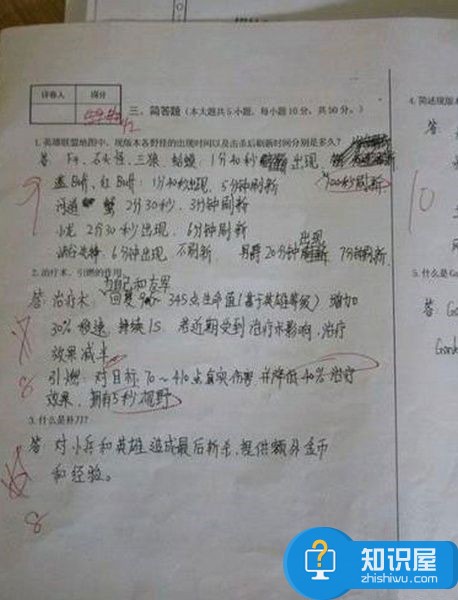 评卷人 得分
三、简答题（本大题共5小题，每小题10分，共50分。）
1.英雄联盟地图中，现版本各野怪的出现时间以及击杀后刷新时间分别是多久？
答 F4、石头怪、三狼、蛤蟆：1分40秒 出现
100秒刷新
蓝Buff、红Buff：1分40秒出现，5分钟刷新
河道 蟹 2分30秒，3分钟刷新
小龙 2分30秒出现，6分钟刷新
峡谷先锋：6分钟出现 不刷新 男爵20分钟 出现 7分钟刷新
2.治疗术、引燃的作用
答：治疗术： 为自己和友军
回复 90~345点生命值（基于英雄等级） 增加
30%移速，持续1S 若近期受到治疗术影响，治疗
效果减半
引燃：对目标70～410点真实伤害并降低40%治疗
效果，拥有5秒视野
3.什么是补刀？
答 对小兵和英雄造成最后斩杀，提供额外金币
和经验。
9
8
8
4.简述现版本
答
10
5.什么是G
答 G
Gank
知识屋
zhishiwu.com